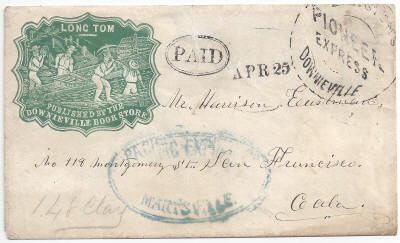 LONG TOM
PUBLISHED BY THE
DOWNIEVILLE BOOKSTORE
PAID
APR 25
PIONEER
EXPRESS
DOWNIEVILLE
Mr. Harrison Eastwood,
No 118 Montgomery St. San Francisco.
Cala.
PACIFIC
MARYSVILLE
148 Clay